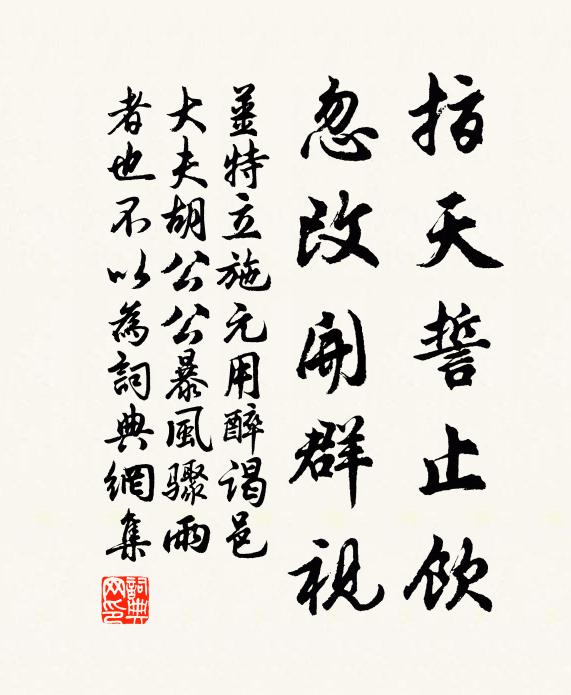 指天誓止飲
忽改開群視
姜特立施元用醉謁邑
大夫胡公公暴風驟雨
者也不以為詞典網集
詞典
网印